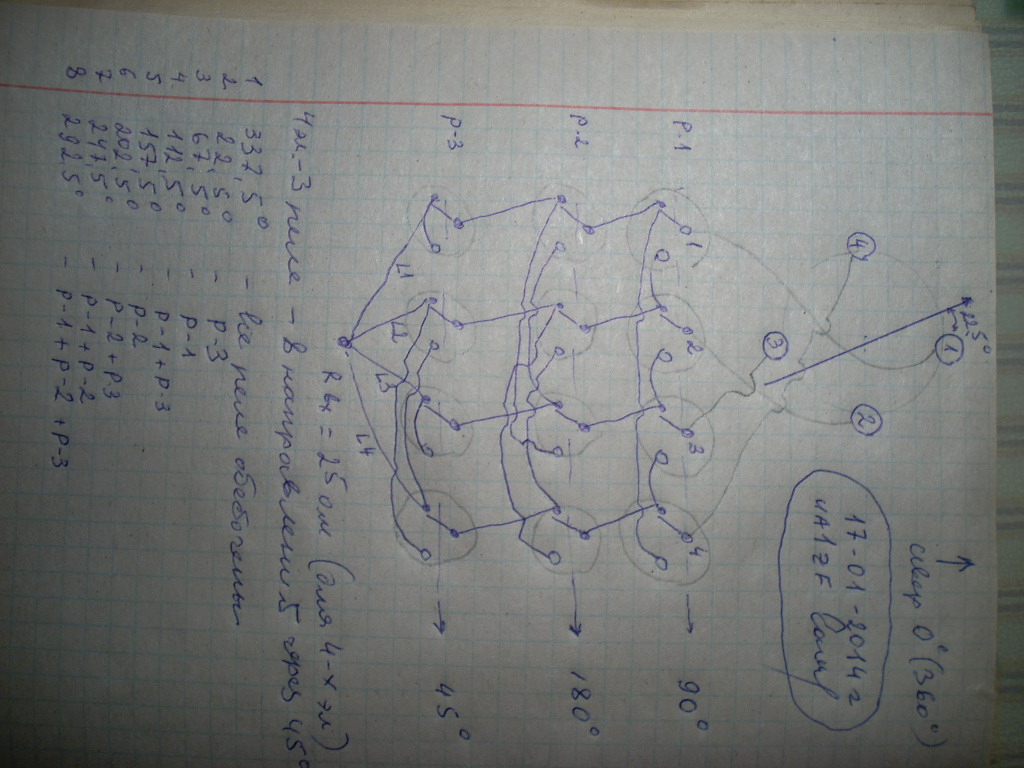 север 0° (360°)
17-01-2014 г
UA1ZF
22,5°
1
4
2
3
Р-1 1 2 3 4 90°
Р-2 180°
Р-3 45°
L1 L2 L3 L4
Rвх = 25 ом (для 4-х эл)
4эл.-3 реле - 8 направлений через 45°
1 337,5° - все реле обесточены
2 22,5° - Р-3
3 67,5° - Р-1
4 112,5° - Р-1 + Р-3
5 157,5° - Р-2
6 202,5° - Р-2 + Р-3
7 247,5° - Р-1 + Р-2
8 292,5° - Р-1 + Р-2 + Р-3